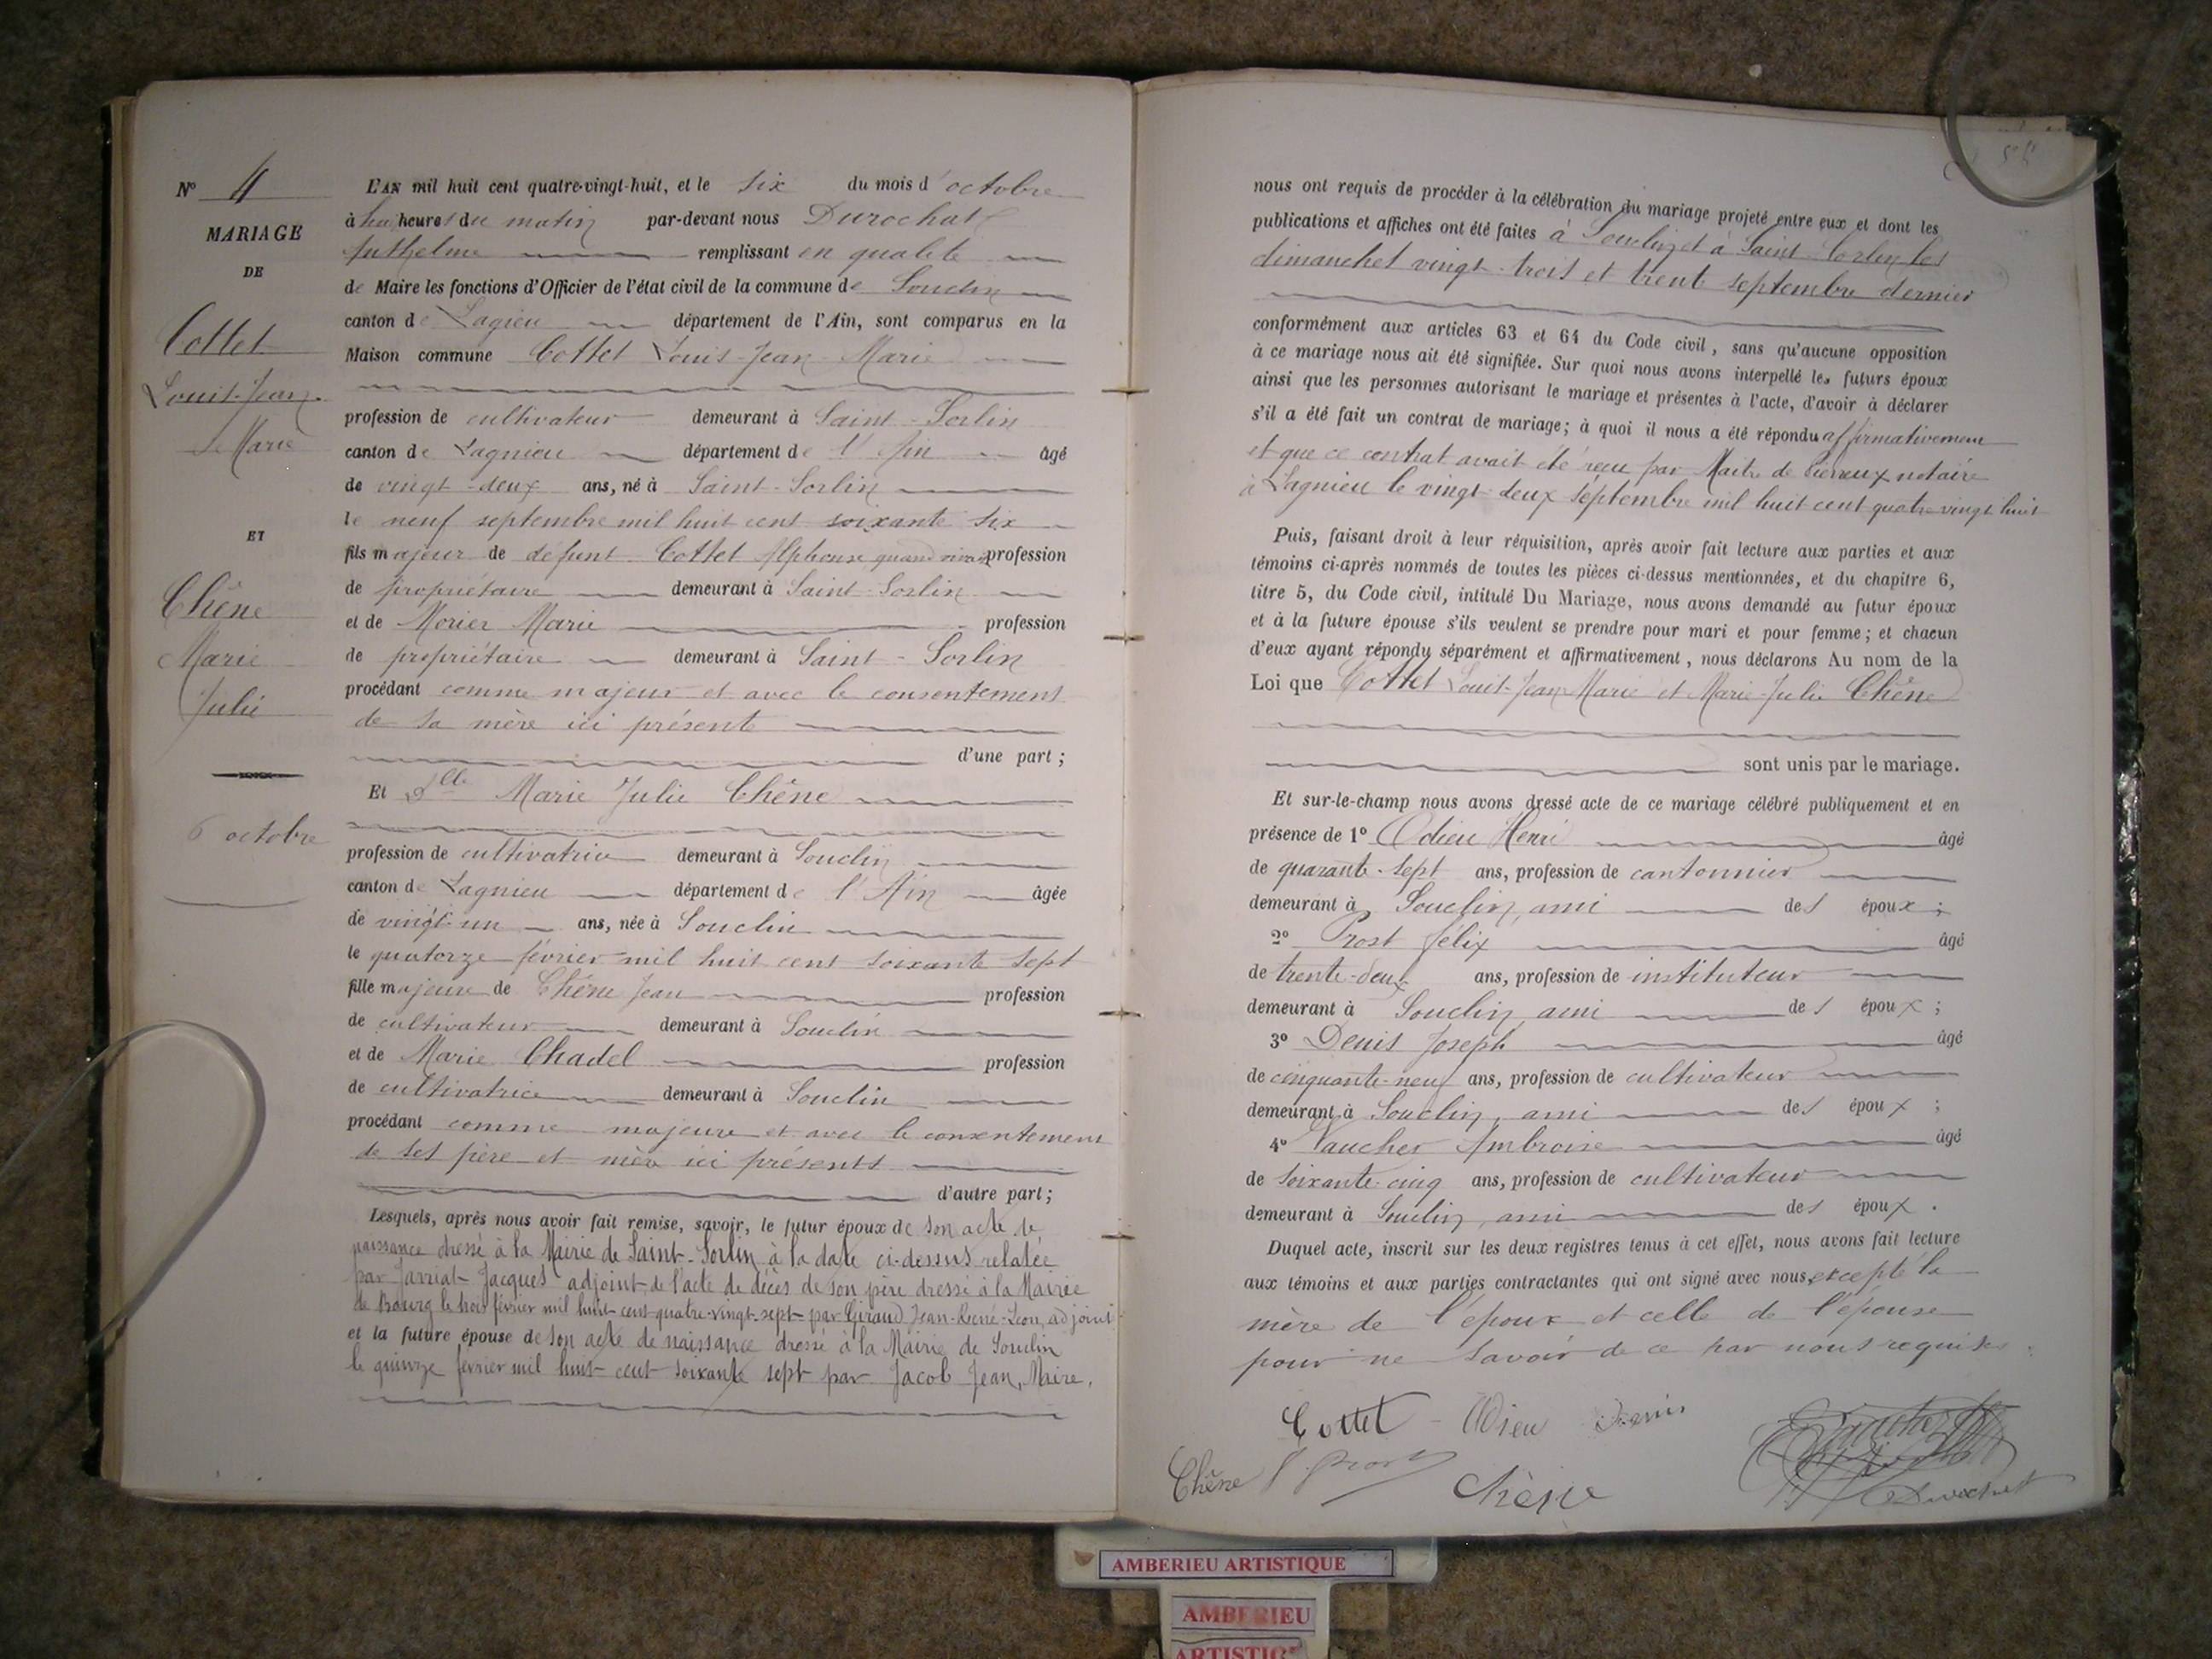 N° 4
MARIAGE
DE
Cottet
Louis-Jean-
Marie
ET
Chêne
Marie
Julie
6 octobre
L'AN mil huit cent quatre-vingt-huit, et le six du mois d'octobre
à huit heures du matin par-devant nous Durochat
Anthelme remplissant en qualité
de Maire les fonctions d'Officier de l'état civil de la commune de Souclin
canton de Lagieu département de l'Ain, sont comparus en la
Maison commune Cottet Louis-Jean-Marie
profession de cultivateur demeurant à Saint-Sorlin
canton de Lagnieu département de l'Ain âgé
de vingt-deux ans, né à Saint-Sorlin
le neuf septembre mil huit cent soixante six
fils majeur de défunt Cottet Alphonse quand vivait profession
de propriétaire demeurant à Saint-Sorlin
et de Morier Marie profession
de propriétaire demeurant à Saint-Sorlin
procédant comme majeur et avec le consentement
de sa mère ici présente
d'une part ;
Et Dlle Marie Julie Chêne
profession de cultivatrice demeurant à Souclin
canton de Lagnieu département de l'Ain âgée
de vingt-un ans, née à Souclin
le quatorze février mil huit cent soixante sept
fille majeure de Chêne Jean profession
de cultivateur demeurant à Souclin
et de Marie Chadel profession
de cultivatrice demeurant à Souclin
procédant comme majeure et avec le consentement
de ses père et mère ici présents
d'autre part ;
Lesquels, après nous avoir fait remise, savoir, le futur époux de son acte de
naissance dressé à la Mairie de Saint-Sorlin à la date ci-dessus relatée
par Jarriat Jacques adjoint de l'acte de décès de son père dressé à la Mairie
de Bourg le trois février mil huit cent quatre-vingt-sept par Giraud Jean-René-Léon, adjoint
et la future épouse de son acte de naissance dressé à la Mairie de Souclin
le quinze février mil huit cent soixante sept par Jacob Jean, Maire.
nous ont requis de procéder à la célébration du mariage projeté entre eux et dont les
publications et affiches ont été faites à Souclin et à Saint Sorlin les
dimanches vingt-trois et trente septembre dernier
conformément aux articles 63 et 64 du Code civil, sans qu'aucune opposition
à ce mariage nous ait été signifiée. Sur quoi nous avons interpellé les futurs époux
ainsi que les personnes autorisant le mariage et présentes à l'acte, d'avoir à déclarer
s'il a été fait un contrat de mariage ; à quoi il nous a été répondu affirmativement
et que ce contrat avait été reçu par Maître de notaire
à Lagnieu le vingt-deux septembre mil huit cent quatre vingt huit
Puis, faisant droit à leur réquisition, après avoir fait lecture aux parties et aux
témoins ci-après nommés de toutes les pièces ci-dessus mentionnées, et du chapitre 6,
titre 5, du Code civil, intitulé Du Mariage, nous avons demandé au futur époux
et à la future épouse s'ils veulent se prendre pour mari et pour femme ; et chacun
d'eux ayant répondu séparément et affirmativement, nous déclarons Au nom de la
Loi que Cottet Louis-Jean Marie et Marie-Julie Chêne
sont unis par le mariage.
Et sur-le-champ nous avons dressé acte de ce mariage célébré publiquement et en
présence de 1° Odieu Henri âgé
de quarante-sept ans, profession de cantonnier
demeurant à Souclin, ami des époux ;
2° Prost Félix âgé
de trente-deux ans, profession de instituteur
demeurant à Souclin ami des époux ;
3° Denis Joseph âgé
de cinquante-neuf ans, profession de cultivateur
demeurant à Souclin, ami des époux ;
4° Vaucher Ambroise âgé
de soixante-cinq ans, profession de cultivateur
demeurant à Souclin, ami des époux.
Duquel acte, inscrit sur les deux registres tenus à cet effet, nous avons fait lecture
aux témoins et aux parties contractantes qui ont signé avec nous, excepté la
mère de l'époux et celle de l'épouse
pour ne savoir de ce par nous requises.
Cottet Odieu Denis
Chêne f Prost Chêne Vaucher
Durochat
AMBERIEU ARTISTIQUE
AMBERIEU
ARTISTIQ